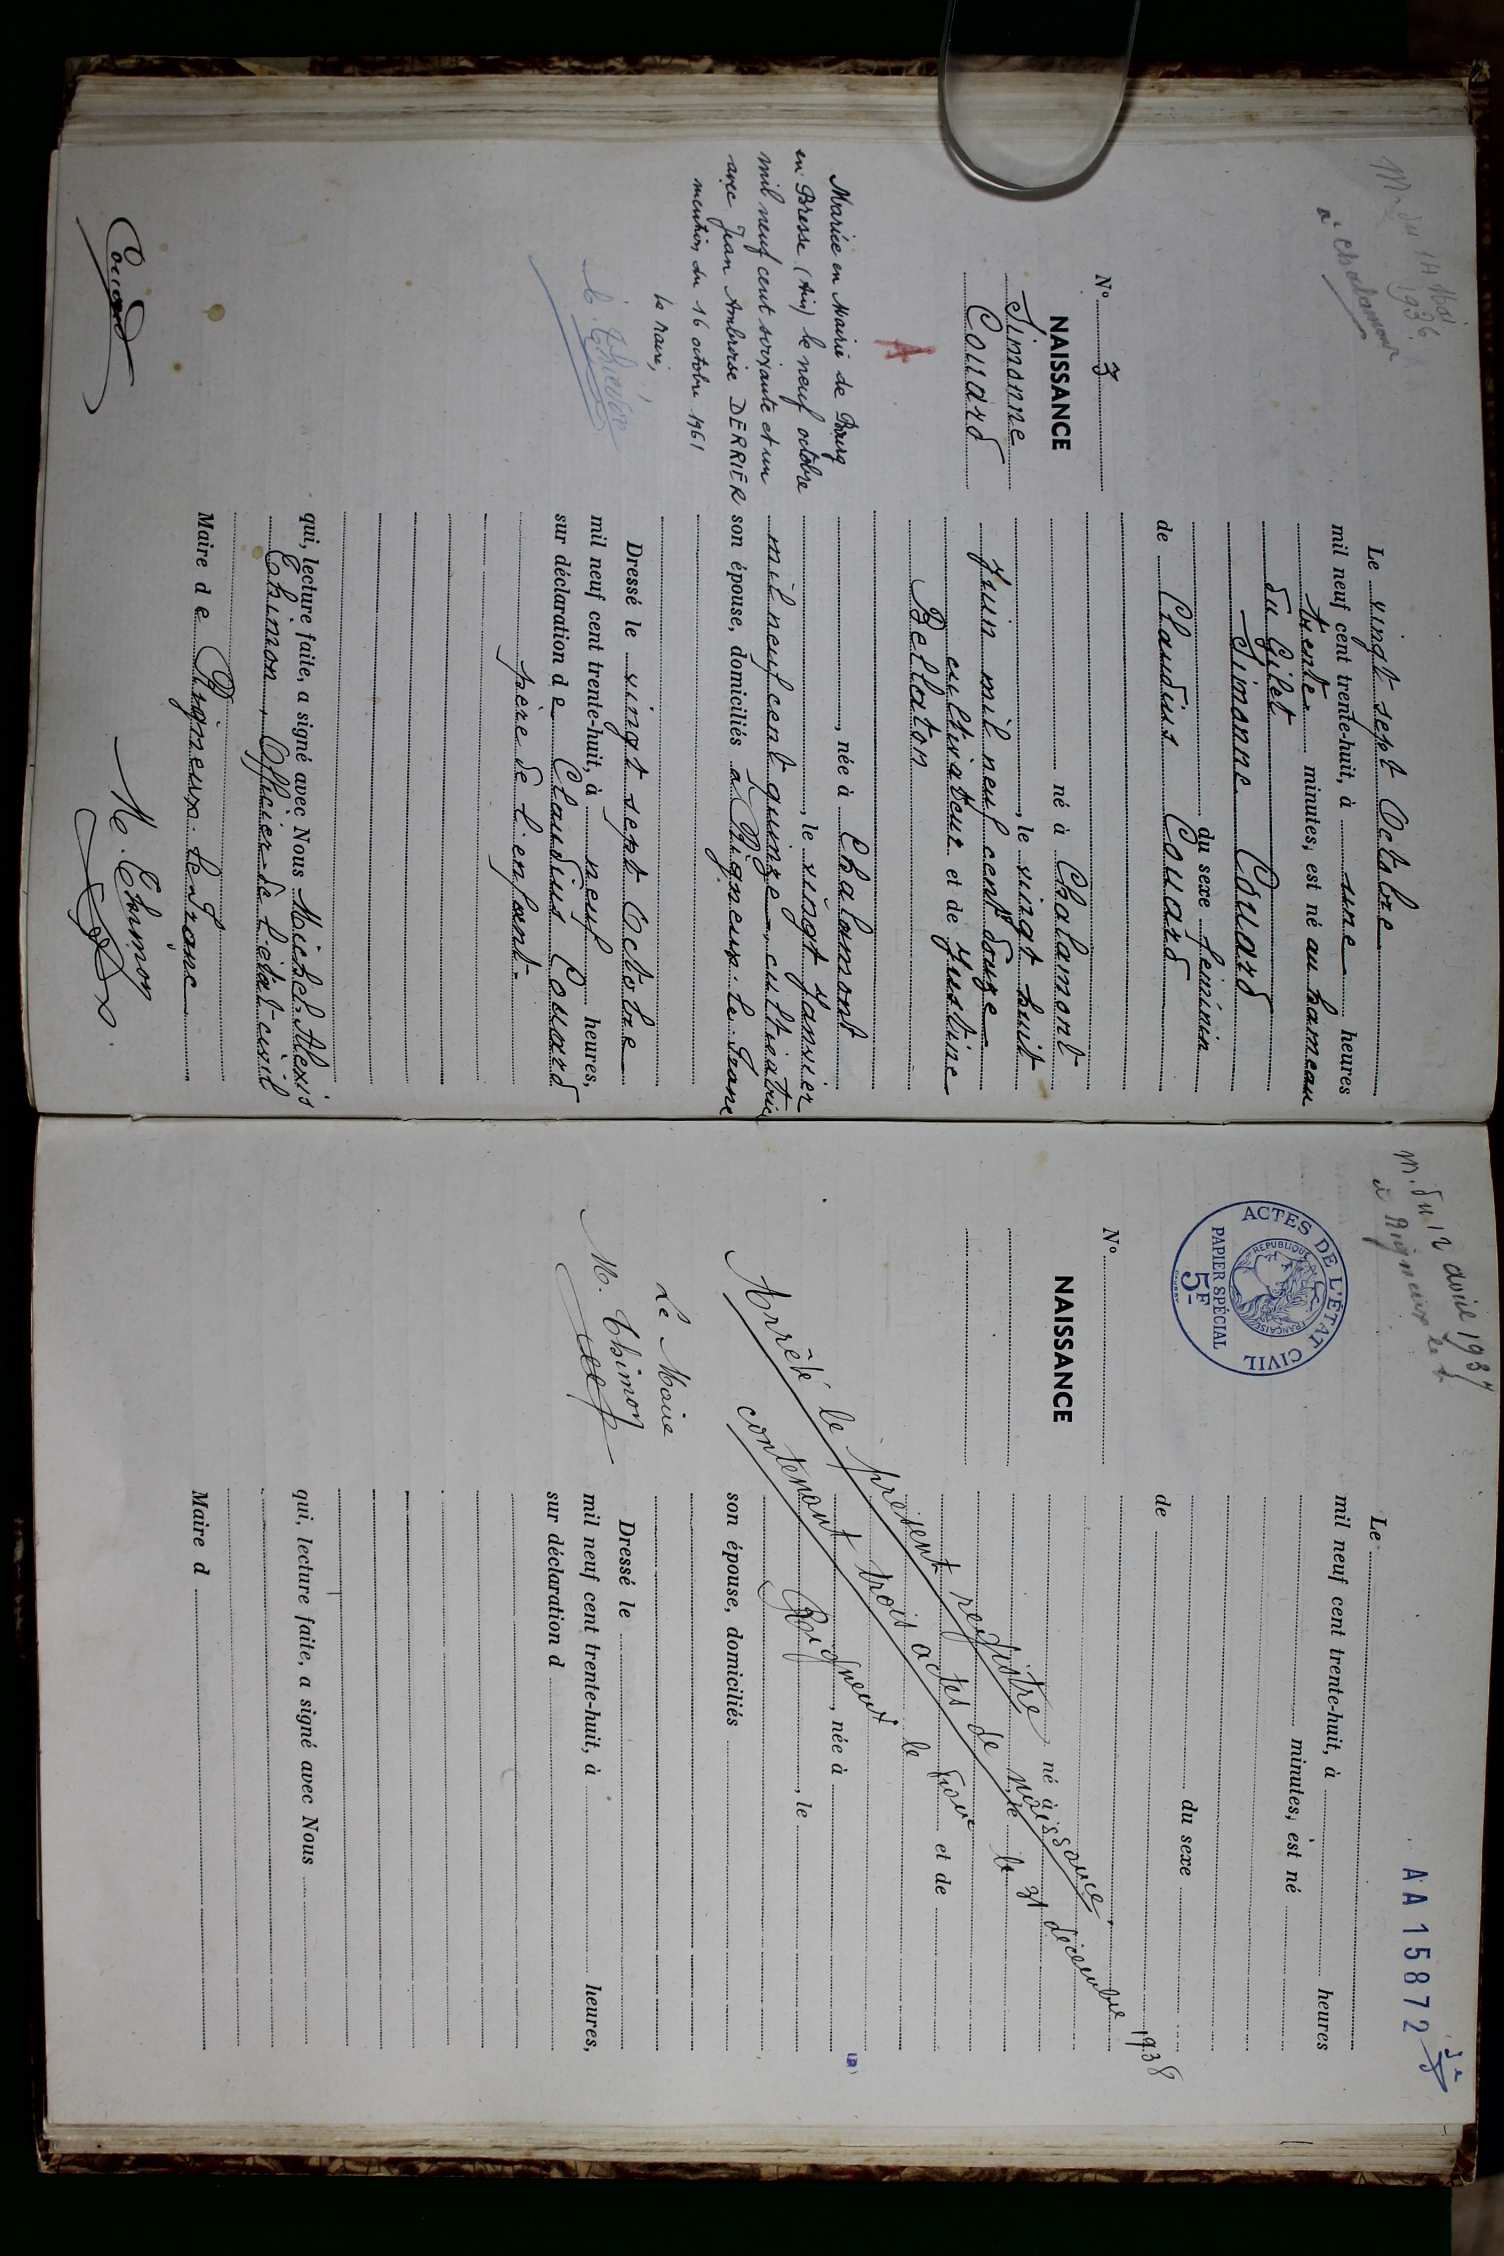 M. du 14 Mai
1936
à Chalamont
N° 3
NAISSANCE
Simonne
Couard
Mariée en Mairie de Bourg
en Bresse (Ain) le neuf octobre
mil neuf cent soixante et un
avec Jean Ambroise DERRIER
mention du 16 octobre 1961
Le Maire,
Le vingt sept Octobre
mil neuf cent trente-huit, à une heures
trente minutes, est né au hameau
du Gilet
Simonne Couard
du sexe féminin
de Claudius Couard
né à Chalamont
, le vingt huit
Juin mil neuf cent douze
cultivateur et de Justine
Bellaton
, née à Chalamont
, le vingt Janvier
mil neuf cent quinze, cultivatrice
son épouse, domiciliés à Rigneux-le-Franc
Dressé le vingt sept Octobre
mil neuf cent trente-huit, à neuf heures,
sur déclaration de Claudius Couard
père de l'enfant-
qui, lecture faite, a signé avec Nous Michel Alexis
Thimon, Officier de l'état-civil
Maire de Rigneux-le-Franc
Couard
M. Thimon
M. du 12 avril 1937
à Rigneux le f.
AA 15872
ACTES DE L'ÉTAT CIVIL
RÉPUBLIQUE FRANÇAISE
PAPIER SPÉCIAL
5F
N°
NAISSANCE
Le
mil neuf cent trente-huit, à heures
minutes, est né
du sexe
de
né à
, le
et de
, née à
, le
son épouse, domiciliés
Dressé le
mil neuf cent trente-huit, à heures,
sur déclaration d
qui, lecture faite, a signé avec Nous
Maire d
Arrêté le présent registre
contenant trois actes de naissance.
Rigneux le Franc le 31 décembre 1938
Le Maire
M. Thimon